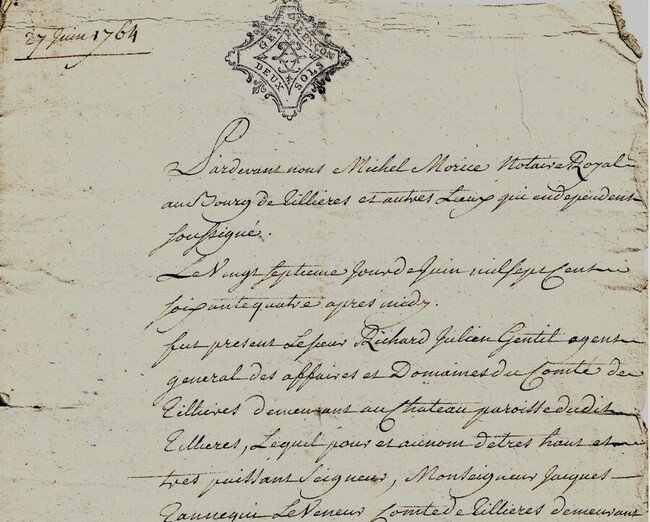 27 Juin 1764
GEN. D'ALENÇON
DEUX SOLS
Pardevant nous Michel Morice Notaire Royal
au Bourg de Tillieres et autres Lieux qui en dependent
soussigné.
Le Vingt septieme Jour de Juin mil sept Cent
soixante quatre apres midy.
fut present Le sieur Richard Julien Gentil agent
general des affaires et Domaines du Comté de
Tillieres demeurant au Chateau paroisse dudit
Tillieres, Lequel pour et au nom de tres haut et
tres puissant Seigneur, Monseigneur Jacques
Tannequi Le Veneur Comte de Tillieres demeurant